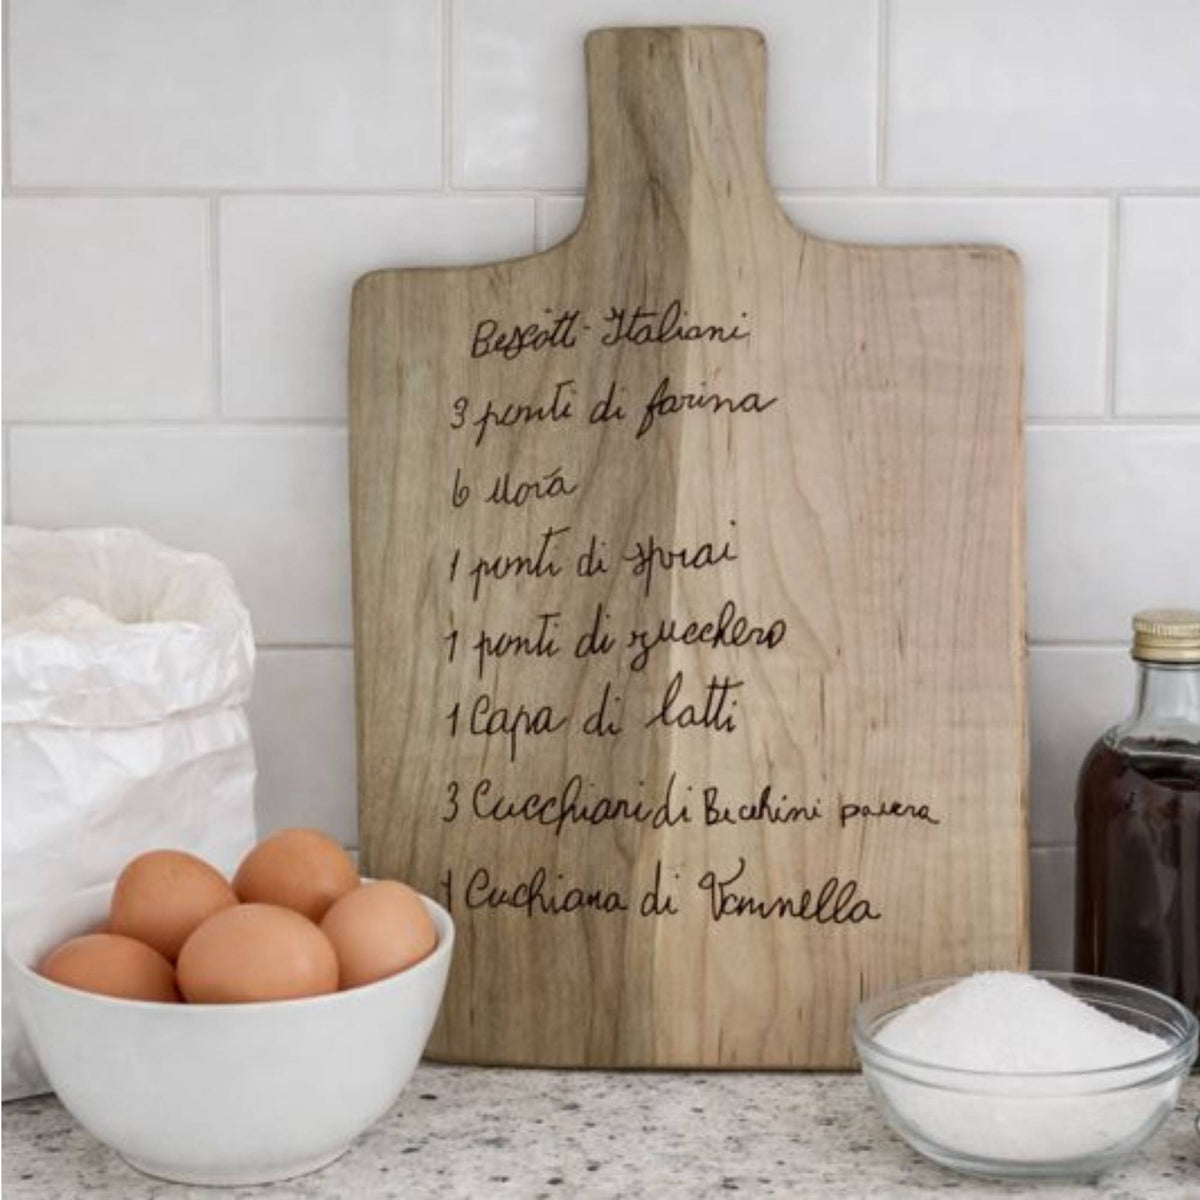 Bescotti Italiani
3 ponti di farina
6 uova
1 ponti di
1 ponti di zucchero
1 Capa di latti
3 Cucchiari di Becchini
1 Cuchiana di Vannella